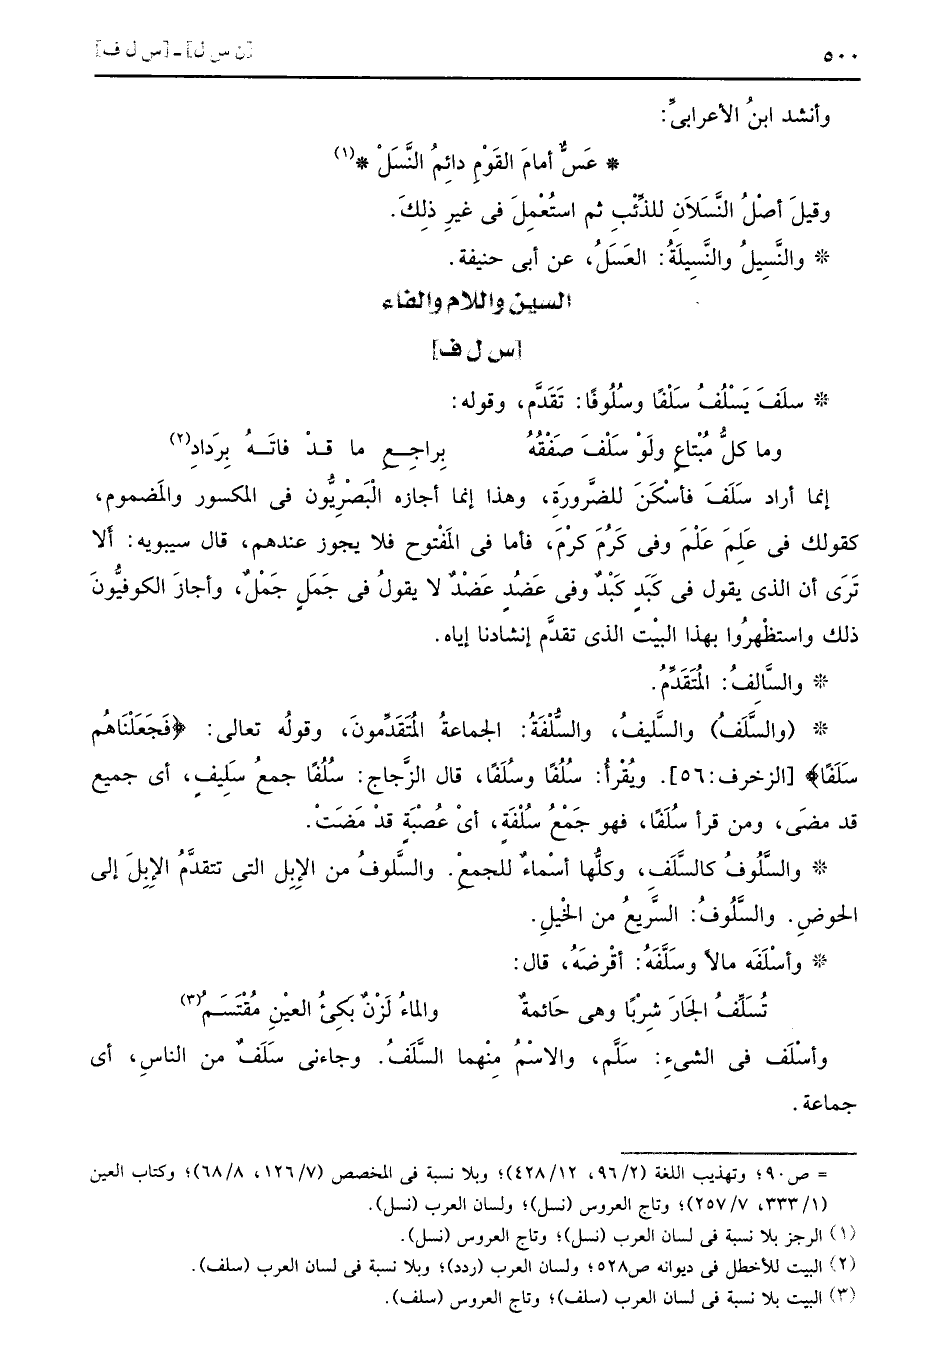 ٥٠٠ [ن س ل] - [س ل ف]
وأنشد ابنُ الأعرابىِّ:
* عَسٌّ أمامَ القَوْمِ دائِمُ النَّسَلْ *(١)
وقيلَ أصْلُ النَّسَلاَنِ للذِّئْبِ ثم استُعْمِلَ فى غيرِ ذلِكَ.
* والنَّسِيلُ والنَّسِيلَةُ: العَسَلُ، عن أبى حنيفة.
السين واللام والفاء
[س ل ف]
* سلَفَ يَسْلُفُ سَلْفًا وسُلُوفًا: تَقَدَّم، وقوله:
وما كلُّ مُبْتاعٍ ولَوْ سَلْفَ صَفْقُهُ براجِــعِ ما قــدْ فاتَــهُ بِرَدادِ(٢)
إنما أراد سَلَفَ فأسْكَنَ للضَّرورَةِ، وهذا إنما أجازه الْبَصْرِيُّون فى المكسور والمضموم،
كقولك فى عَلِمَ عَلْمَ وفى كَرُمَ كَرْمَ، فأما فى المَفْتوح فلا يجوز عندهم، قال سيبويه: ألا
تَرَى أن الذى يقول فى كَبَدٍ كَبْدٌ وفى عَضُدٍ عَضْدٌ لا يقولُ فى جَمَلٍ جَمْلٌ، وأجازَ الكوفيُّونَ
ذلك واستظْهرُوا بهذا البيْت الذى تقدَّم إنشادنا إياه.
* والسَّالِفُ: المُتَقَدِّمُ.
* (والسَّلَفُ) والسَّلِيفُ، والسُّلْفَةُ: الجماعةُ المُتَقَدِّمونَ، وقولُه تعالى: ﴿فَجَعَلْنَاهُم
سَلَفًا﴾ [الزخرف:٥٦]. ويُقْرأُ: سُلُفًا وسُلَفًا، قال الزَّجاج: سُلُفًا جمعُ سَلِيفٍ، أى جميع
قد مضَى، ومن قرأ سُلَفًا، فهو جَمْعُ سُلْفَةٍ، أىْ عُصْبَةٍ قدْ مَضَتْ.
* والسَّلُوفُ كالسَّلَفِ، وكلُّها أسْماءٌ للجمعْ. والسَّلوفُ من الإبِل التى تتقدَّمُ الإبِلَ إلى
الحوضِ. والسَّلُوفُ: السَّرِيعُ من الخْيلِ.
* وأسْلَفَه مالاً وسَلَّفَهُ: أقْرضَهُ، قال:
تُسَلِّفُ الجَارَ شرِبًا وهى حَائمةٌ والماءُ لَزْنٌ بَكِئُ العيْنِ مقُتَسَــمُ(٣)
وأسْلَف فى الشىءِ: سَلَّم، والاسْمُ مِنْهما السَّلَفُ. وجاءنى سَلَفٌ من الناسِ، أى
جماعة.
= ص٩٠؛ وتهذيب اللغة (٩٦/٢، ٤٢٨/١٢)؛ وبلا نسبة فى المخصص (١٢٦/٧، ٦٨/٨)؛ وكتاب العين
(٣٣٣/١، ٢٥٧/٧)؛ وتاج العروس (نسل)؛ ولسان العرب (نسل).
(١) الرجز بلا نسبة فى لسان العرب (نسل)؛ وتاج العروس (نسل).
(٢) البيت للأخطل فى ديوانه ص٥٢٨؛ ولسان العرب (ردد)؛ وبلا نسبة فى لسان العرب (سلف).
(٣) البيت بلا نسبة فى لسان العرب (سلف)؛ وتاج العروس (سلف).